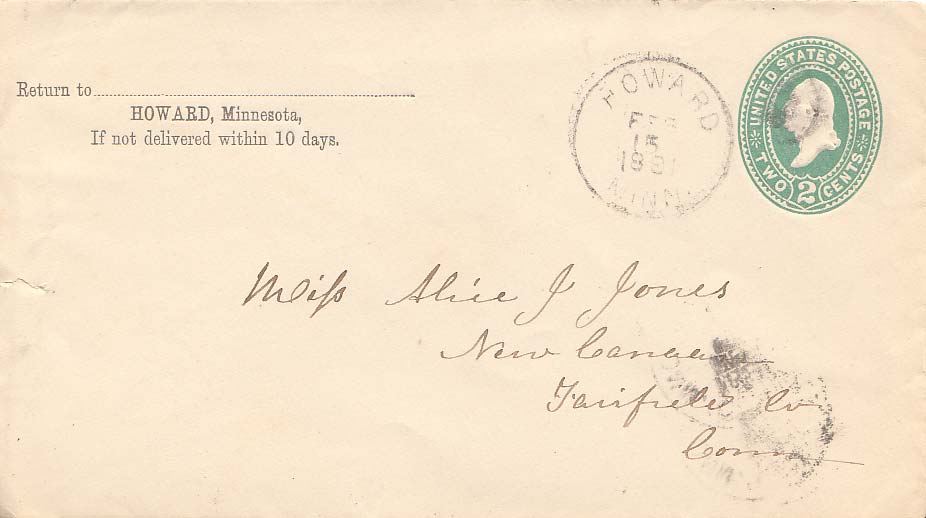 Return to
HOWARD, Minnesota,
If not delivered within 10 days.
HOWARD
FEB
15
MINN.
UNITED STATES POSTAGE
TWO 2 CENTS
Miss Alice J Jones
New Canaan
Fairfield Co
Conn